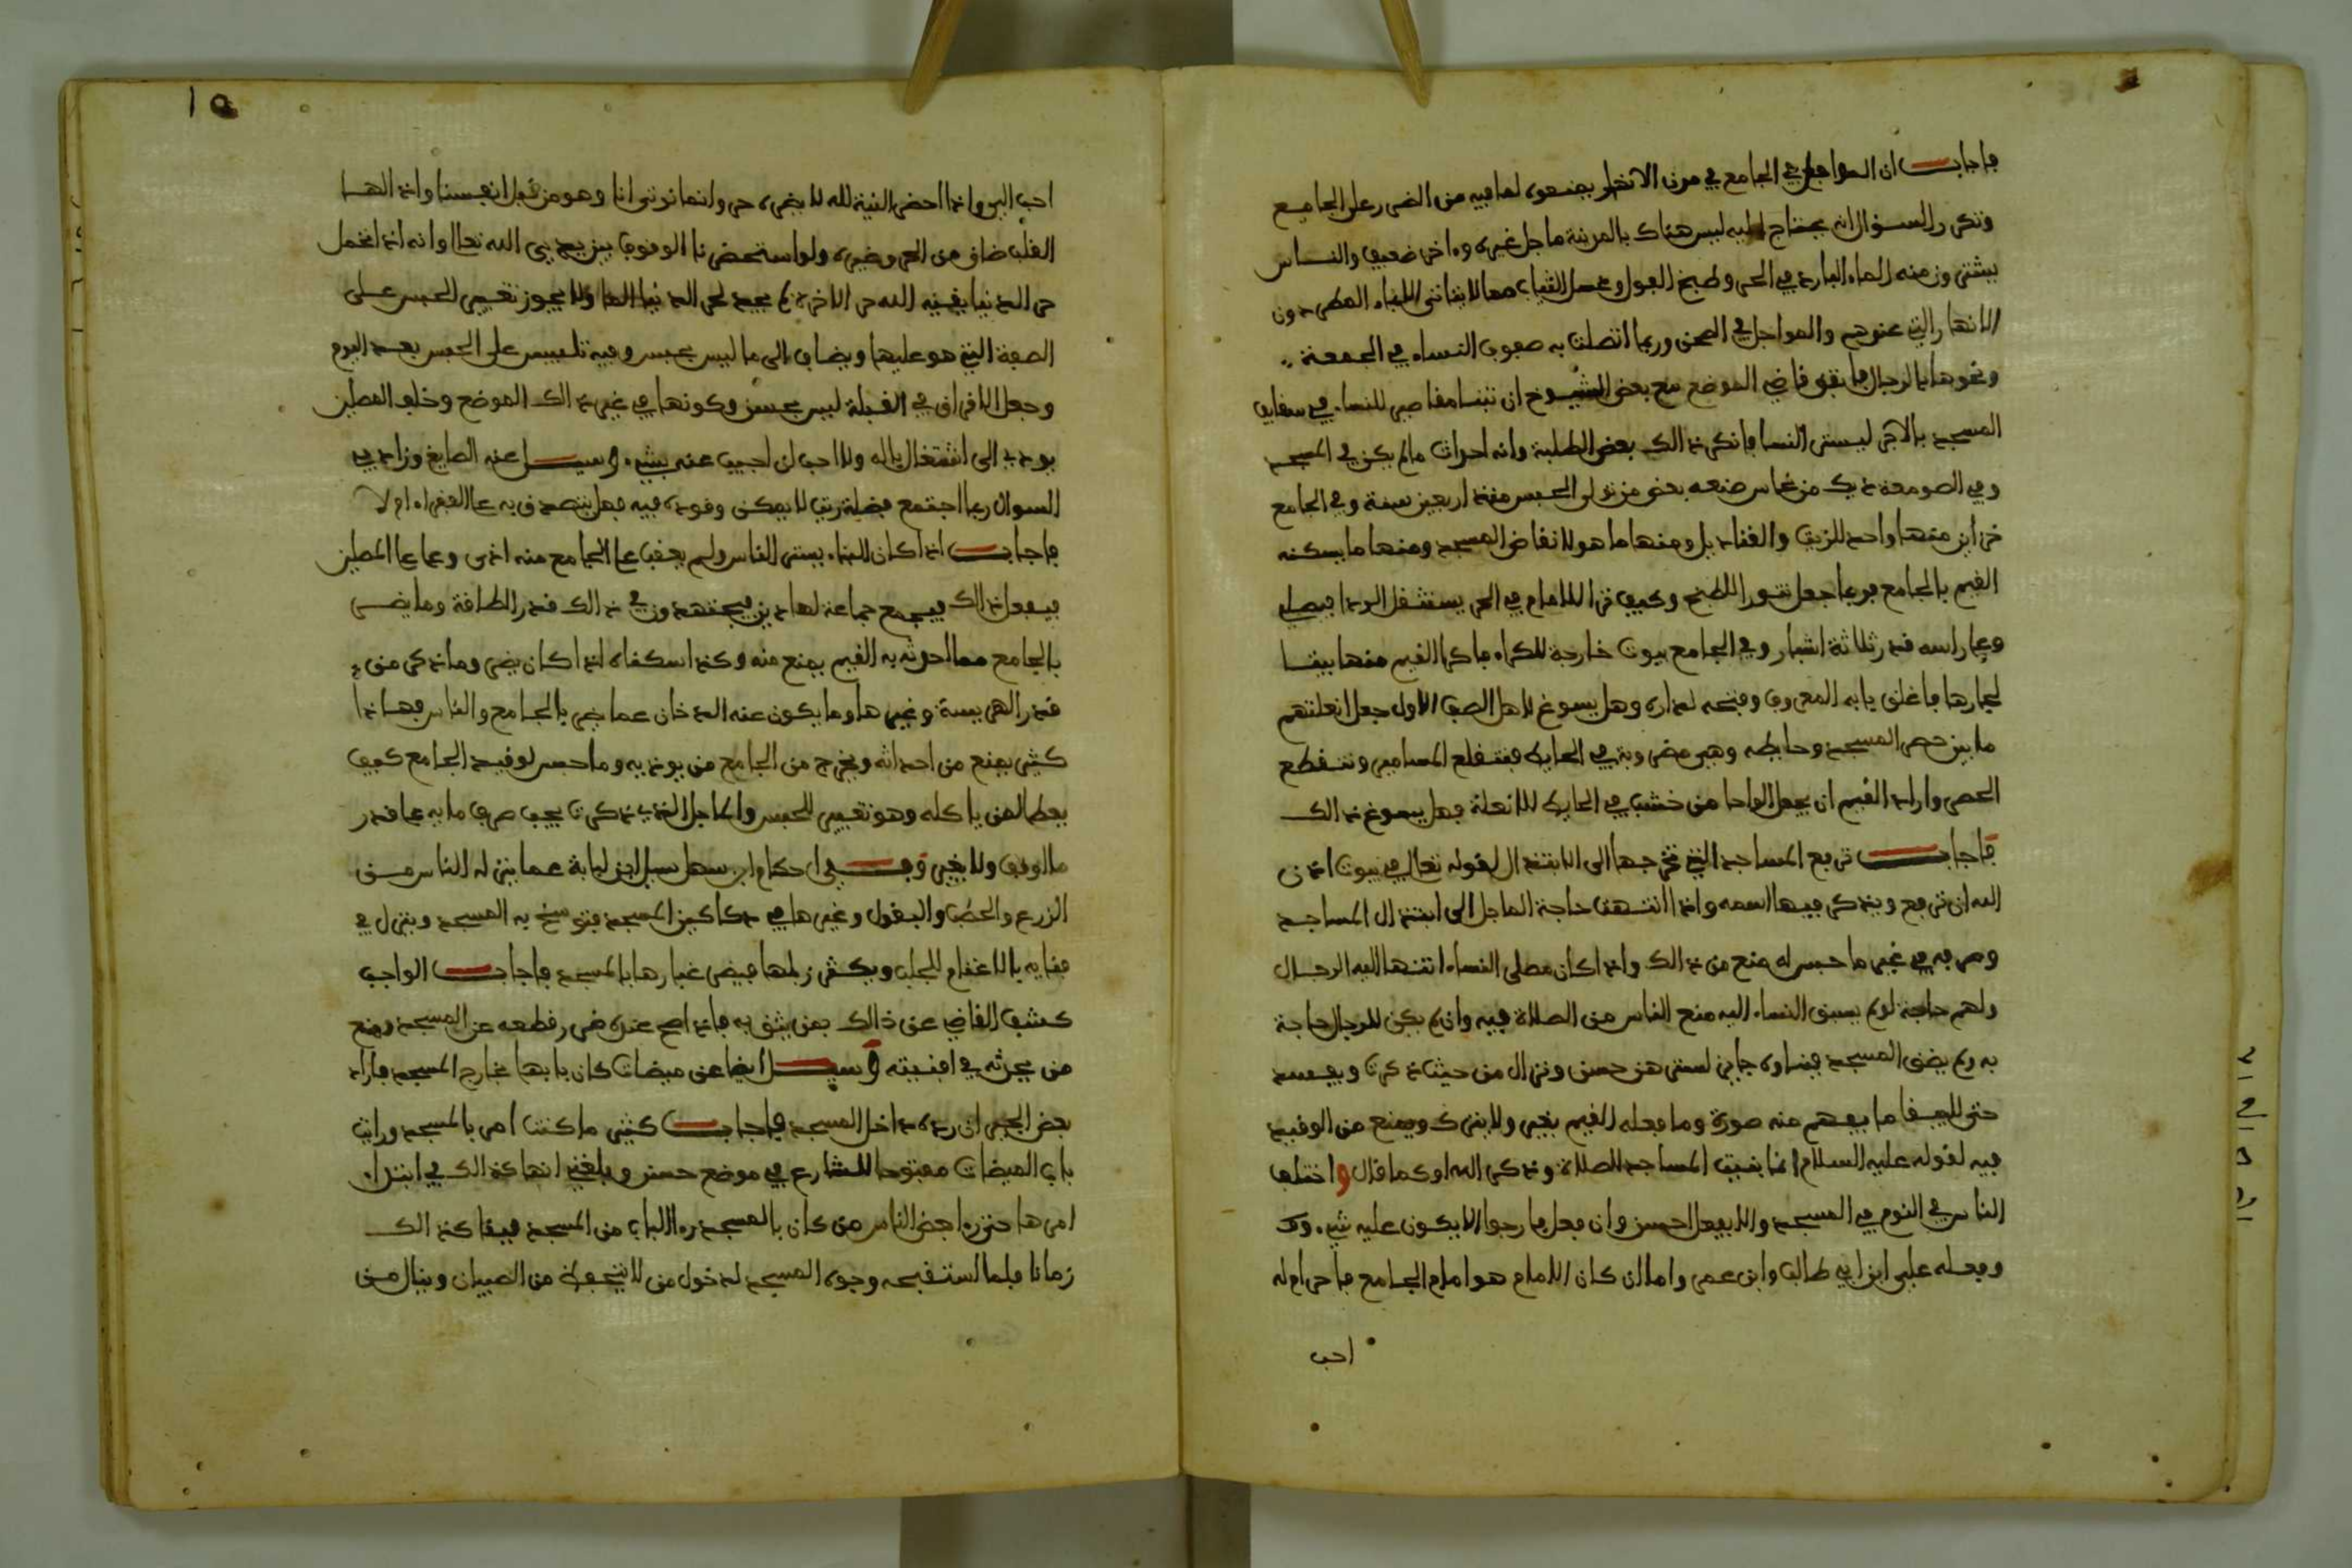 فاجاب ان المواجل في الجامع في مدن الانضار يمنعوه لما فيه من الضرر على الجامع
وتكرر السؤال انه يحتاج اليه ليس هناك بالمدينة ماجل غيره واخر ضعيف والناس
يشترون منه الماء البارد في الحر وطبخ الفول وغسل الثياب مما لا يتاتى الا بماء المطر دون
الانهار التي عندهم والمواجل في الصحن وربما اتصلت به صفوف النساء في الجمعة
ونحوها بالرجال فاتفق قاضي الموضع مع بعض الشيوخ ان تبنا مقاصير للنساء في سقايف
المسجد بالاجر ليستر النسا فانكر ذالك بعض الطلبة وانه احداث ما لم يكن في المسجد
وفي الصومعة ديك من نحاس صنعه بعض من تولى الحبس منذ اربعين سنة وفي الجامع
خزاين منها واحد للزيت والقناديل ومنها ما هو لانقاض المسجد ومنها ما يسكنه
القيم بالجامع فربما جعل تنور اللطبخ وكيف ترا للامام في الحر يستثقل الردا فيصلي
وعلى راسه قدر ثلاثة اشبار وفي الجامع بيوت خارجة للكراء فاكرا القيم منها بيتا
لجارها فاغلق بابه المعروف وفتحه لداره وهل يسوغ لاهل الصف الاول جعل انعلتهم
ما بين حصر المسجد وحايطه وهي مضروبة في الحايط فتنقلع المسامير وتنقطع
الحصر واراد القيم ان يجعل الواحا من خشب في الحايط للانعلة فهل يسوغ ذالك
فاجاب ترفع المساجد التي تخرجها الى الابتذال لقوله تعالى في بيوت اذن
الله ان ترفع ويذكر فيها اسمه واذا انتهت حاجة الماجل الى ابتذال المساجد
وصرفه في غير ما حبس له منع من ذالك واذا كان مصلى النساء انتهى اليه الرجال
ولهم حاجة لو لم يسبق النساء اليه منع الناس من الصلاة فيه وان لم يكن للرجال حاجة
به ولم يضق المسجد فتداوه جاين لسترهن حسن وتزال من حيث ذكرت ويفسد
حتى لا يبقا ما يفهم منه صورة وما فعله القيم يغير ولا يترك ويمنع من الوقيد
فيه لقوله عليه السلام انما بنيت المساجد للصلاة وذكر الله او كما قال واختلف
الناس في النوم في المسجد والا يفعل احسن وان فعل فارجوا الا يكون عليه شيء وقد
وفعله علي ابن ابي طالب وابن عمر واما ان كان الامام هو امام الجامع فاحرامه له
احب
١٥
احب الي واذا احضر النية لله لا يغيره حر وانما نوتى انا وهو من قبل انفسنا واذا الها
القلب ضاق من الحر وغيره ولو استحضرنا الوقوف بين يدي الله تعالى وانه اذا تحمل
حر الدنيا يقيه الله حر الاخرة لم يجد لحر الدنيا الما ولا يجوز تغيير الحبس على
الصفة التي هو عليها ويضاف الى ما ليس بحبس وفيه تلبيس على الحبس بعد اليوم
وجعل الافراق في القبلة ليس بحسن وكونها في غير ذالك الموضع وخلف المصلين
يودي الى اشتغال باله ولا احب ان اجيب عنه بشيء وسيل عنه الصايغ وزاد في
السوال ربما اجتمع فضلة زيت لا يمكن وقوده فيه فهل يتصدق به على الفقراء ام لا
فاجاب اذا كان الماء يستر الناس ولم يخف على الجامع منه اذى وعلى المصلين
فيفعل ذالك فيجمع جماعة لها دين فيجتهدون في ذالك قدر الطاقة وما يضر
بالجامع مما احدثه به القيم يمنع منه وكذا سكناه اذا كان يضر وما ذكر من
قدر الهريسة وغيرها وما يكون عنه الدخان عما يضر بالجامع والناس فهاذا
كثير يمنع من احداثه ويخرج من الجامع من يوذيه وما حبس لوقيد الجامع كيف
يعطا لمن ياكله وهو تغيير للحبس والماجل الذي ذكرت يجب صرف مايه على قدر
ما اوقف ولا يغير وفي احكام ابن سهل سيل ابن لبابة عما ينزله الناس من
الزرع والحطب والبقول وغيرها في دكاكين المسجد فيتوسخ به المسجد وينزل في
فنايه بالاغنام للجلب ويكثر زبلها فيضر غبارها بالمسجد فاجاب الواجب
كشف القاضي عن ذالك بمن يثق به فاذا صح عنده ضرر قطعه عن المسجد ومنع
من يحدثه في افنيته وسيل ايضا عن ميضات كان بابها خارج المسجد فاراد
بعض الجيران رده داخل المسجد فاجاب كثير ما كنت امر بالمسجد ورايت
باب الميضات مفتوحا للشارع في موضع حسن وبلغني انها كذالك في ابتداء
امرها حتى راى بعض الناس من كان بالمسجد رد الباب من المسجد فبقا كذالك
زمانا فلما استقبحه وجوه المسجد لدخول من لا يتحفظ من الصبيان وينال من